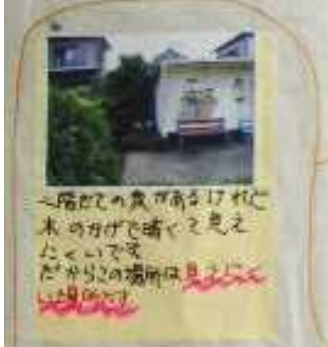 二階だての家があるけれど
木のかげで暗くて見え
にくいです
だからこの場所は見えにく
い場所です